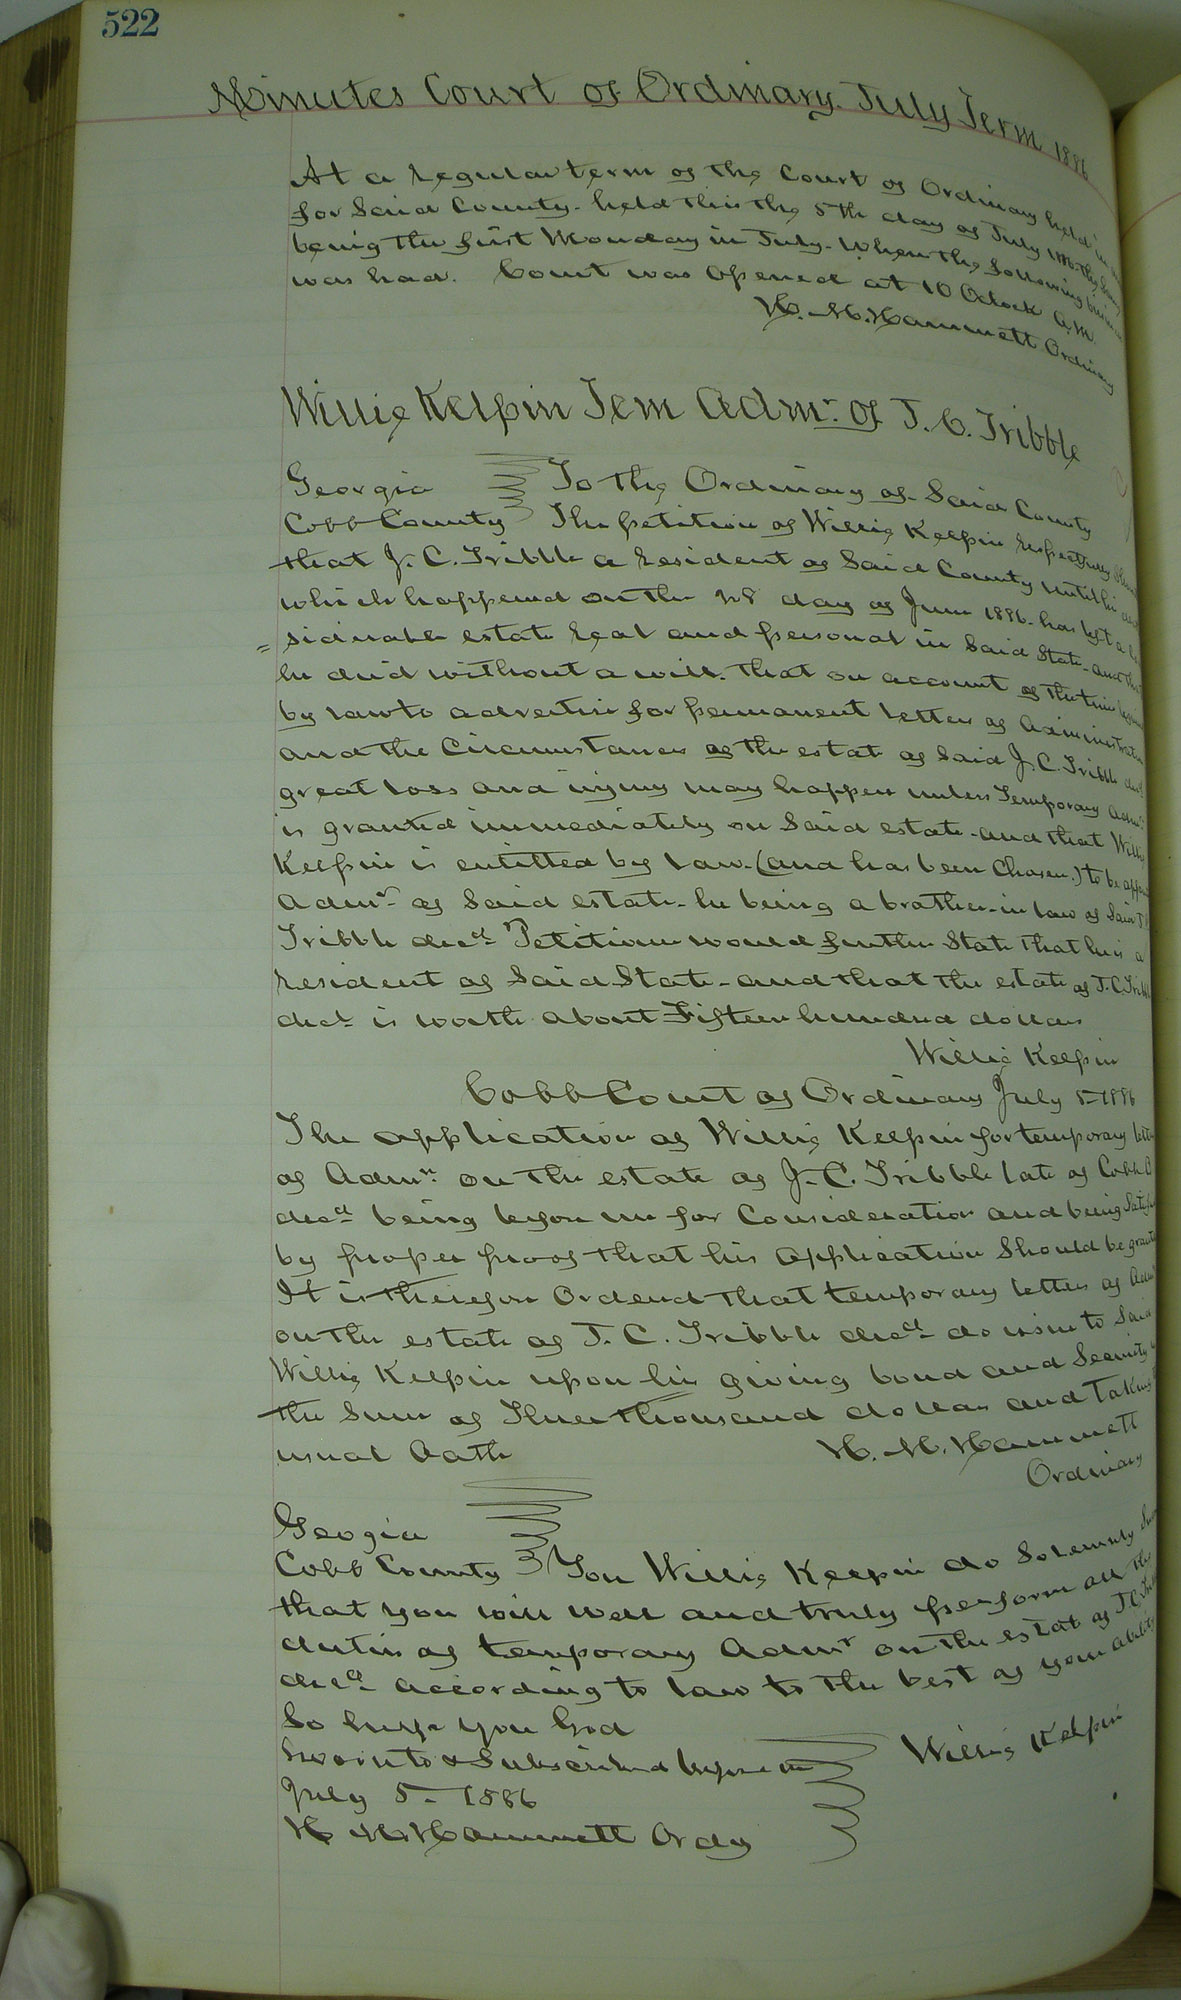 522
Minutes Court of Ordinary. July Term 1886
At a regular term of the Court of Ordinary held in
for Said County. held this the 5th day of July
being the first Monday in July. When the following
was had. Court was opened at 10 Oclock A.M.
H. M. Hammett Ordinary
Willie Kelpin Tem Admr. of J. C. Tribble
Georgia To the Ordinary of Said County
Cobb County The petition of Willie Kelpin Respectfully
that J. C. Tribble a resident of Said County until his
which happened on the day of June 1886. has left a
= siderable estate real and personal in Said State. and that
he died without a will. that on account of the time
by law to advertise for permanent letters of Administration
and the Circumstances of the estate of Said J. C. Tribble decd
great loss and injury may happen unless Temporary Admr
is granted immediately on Said estate. and that Willie
Kelpin is entitled by law. (and has been Chosen.) to be
Admr of Said estate. he being a brother-in law of Said
Tribble decd Petitioner would further State that he is a
resident of Said State. and that the estate of J. C. Tribble
decd is worth about Fifteen hundred dollars
Willie Kelpin
Cobb Court of Ordinary July 5-1886
The application of Willie Kelpin for temporary
of Admn. on the estate of J. C. Tribble late of Cobb
decd being before me for Consideration and being
by proper proof that his application Should be
It is therefore Ordered that temporary letters of
on the estate of J. C. Tribble decd do issue to Said
Willie Kelpin upon his giving bond and Security
the Sum of Three thousand dollars and taking
usual Oath H. M. Hammett
Ordinary
Geogia
Cobb County You Willie Kelpin do Solemnly
that you will well and truly perform all the
duties of temporary Admr on the estate of J. C.
decd according to law to the best of your ability
So help you God
Sworn to & Subscribed before me Willie Kelpin
July 5- 1886
H M Hammett Ordy